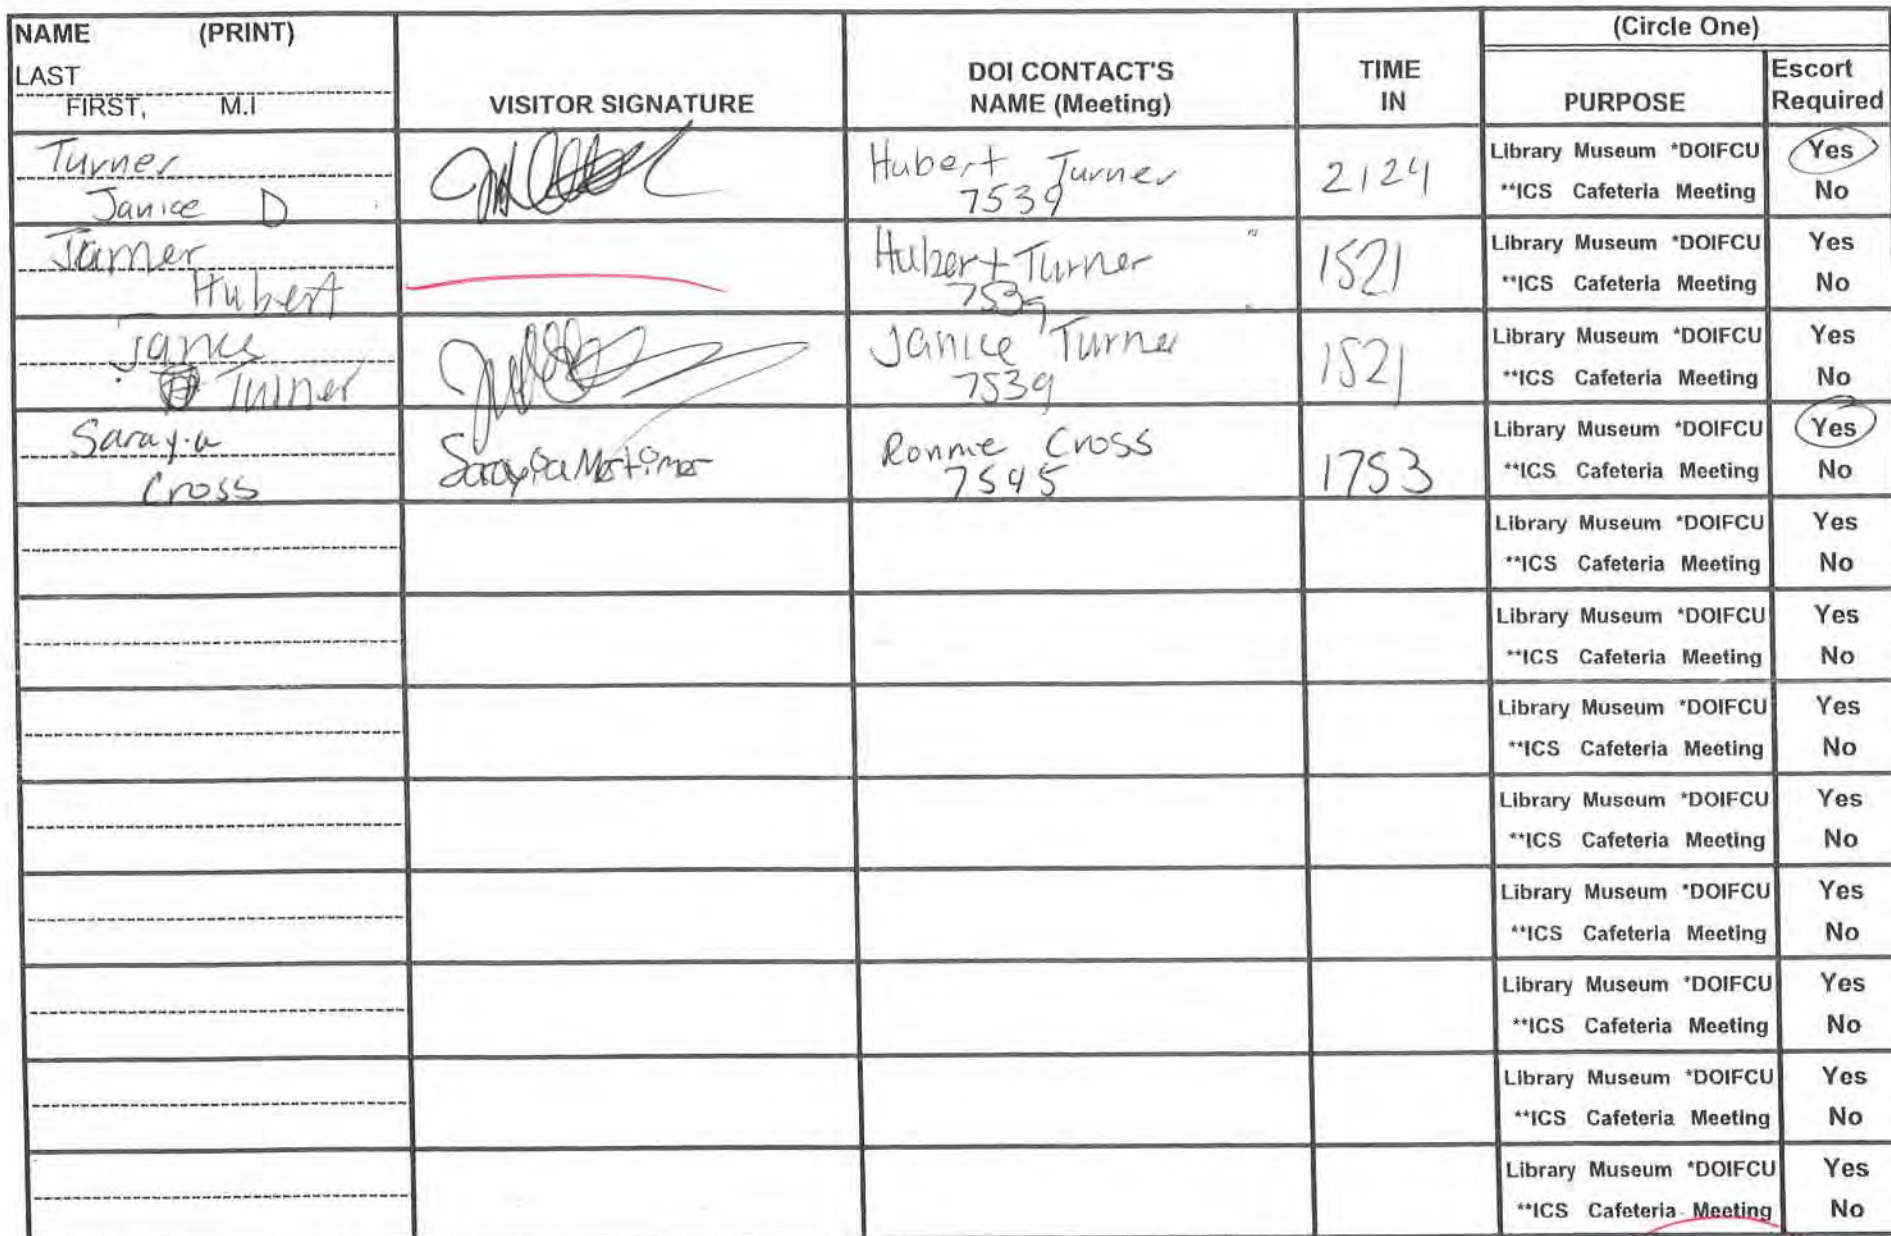 NAME (PRINT)
LAST
FIRST, M.I
VISITOR SIGNATURE
DOI CONTACT'S
NAME (Meeting)
TIME
IN
(Circle One)
PURPOSE
Escort
Required
Turner
Janice D
Hubert Turner
7539
2124
Library Museum *DOIFCU Yes
**ICS Cafeteria Meeting No
Hubert
Hubert Turner
7539
1521
Library Museum *DOIFCU Yes
**ICS Cafeteria Meeting No
Turner
Janice Turner
7539
1521
Library Museum *DOIFCU Yes
**ICS Cafeteria Meeting No
Cross
Ronnie Cross
7545
1753
Library Museum *DOIFCU Yes
**ICS Cafeteria Meeting No
Library Museum *DOIFCU Yes
**ICS Cafeteria Meeting No
Library Museum *DOIFCU Yes
**ICS Cafeteria Meeting No
Library Museum *DOIFCU Yes
**ICS Cafeteria Meeting No
Library Museum *DOIFCU Yes
**ICS Cafeteria Meeting No
Library Museum *DOIFCU Yes
**ICS Cafeteria Meeting No
Library Museum *DOIFCU Yes
**ICS Cafeteria Meeting No
Library Museum *DOIFCU Yes
**ICS Cafeteria Meeting No
Library Museum *DOIFCU Yes
**ICS Cafeteria Meeting No